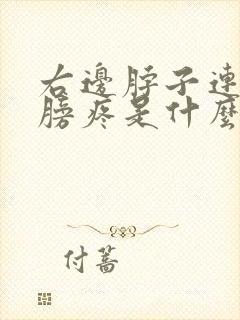 右邊脖子連
膀疼是什麼
付蕎